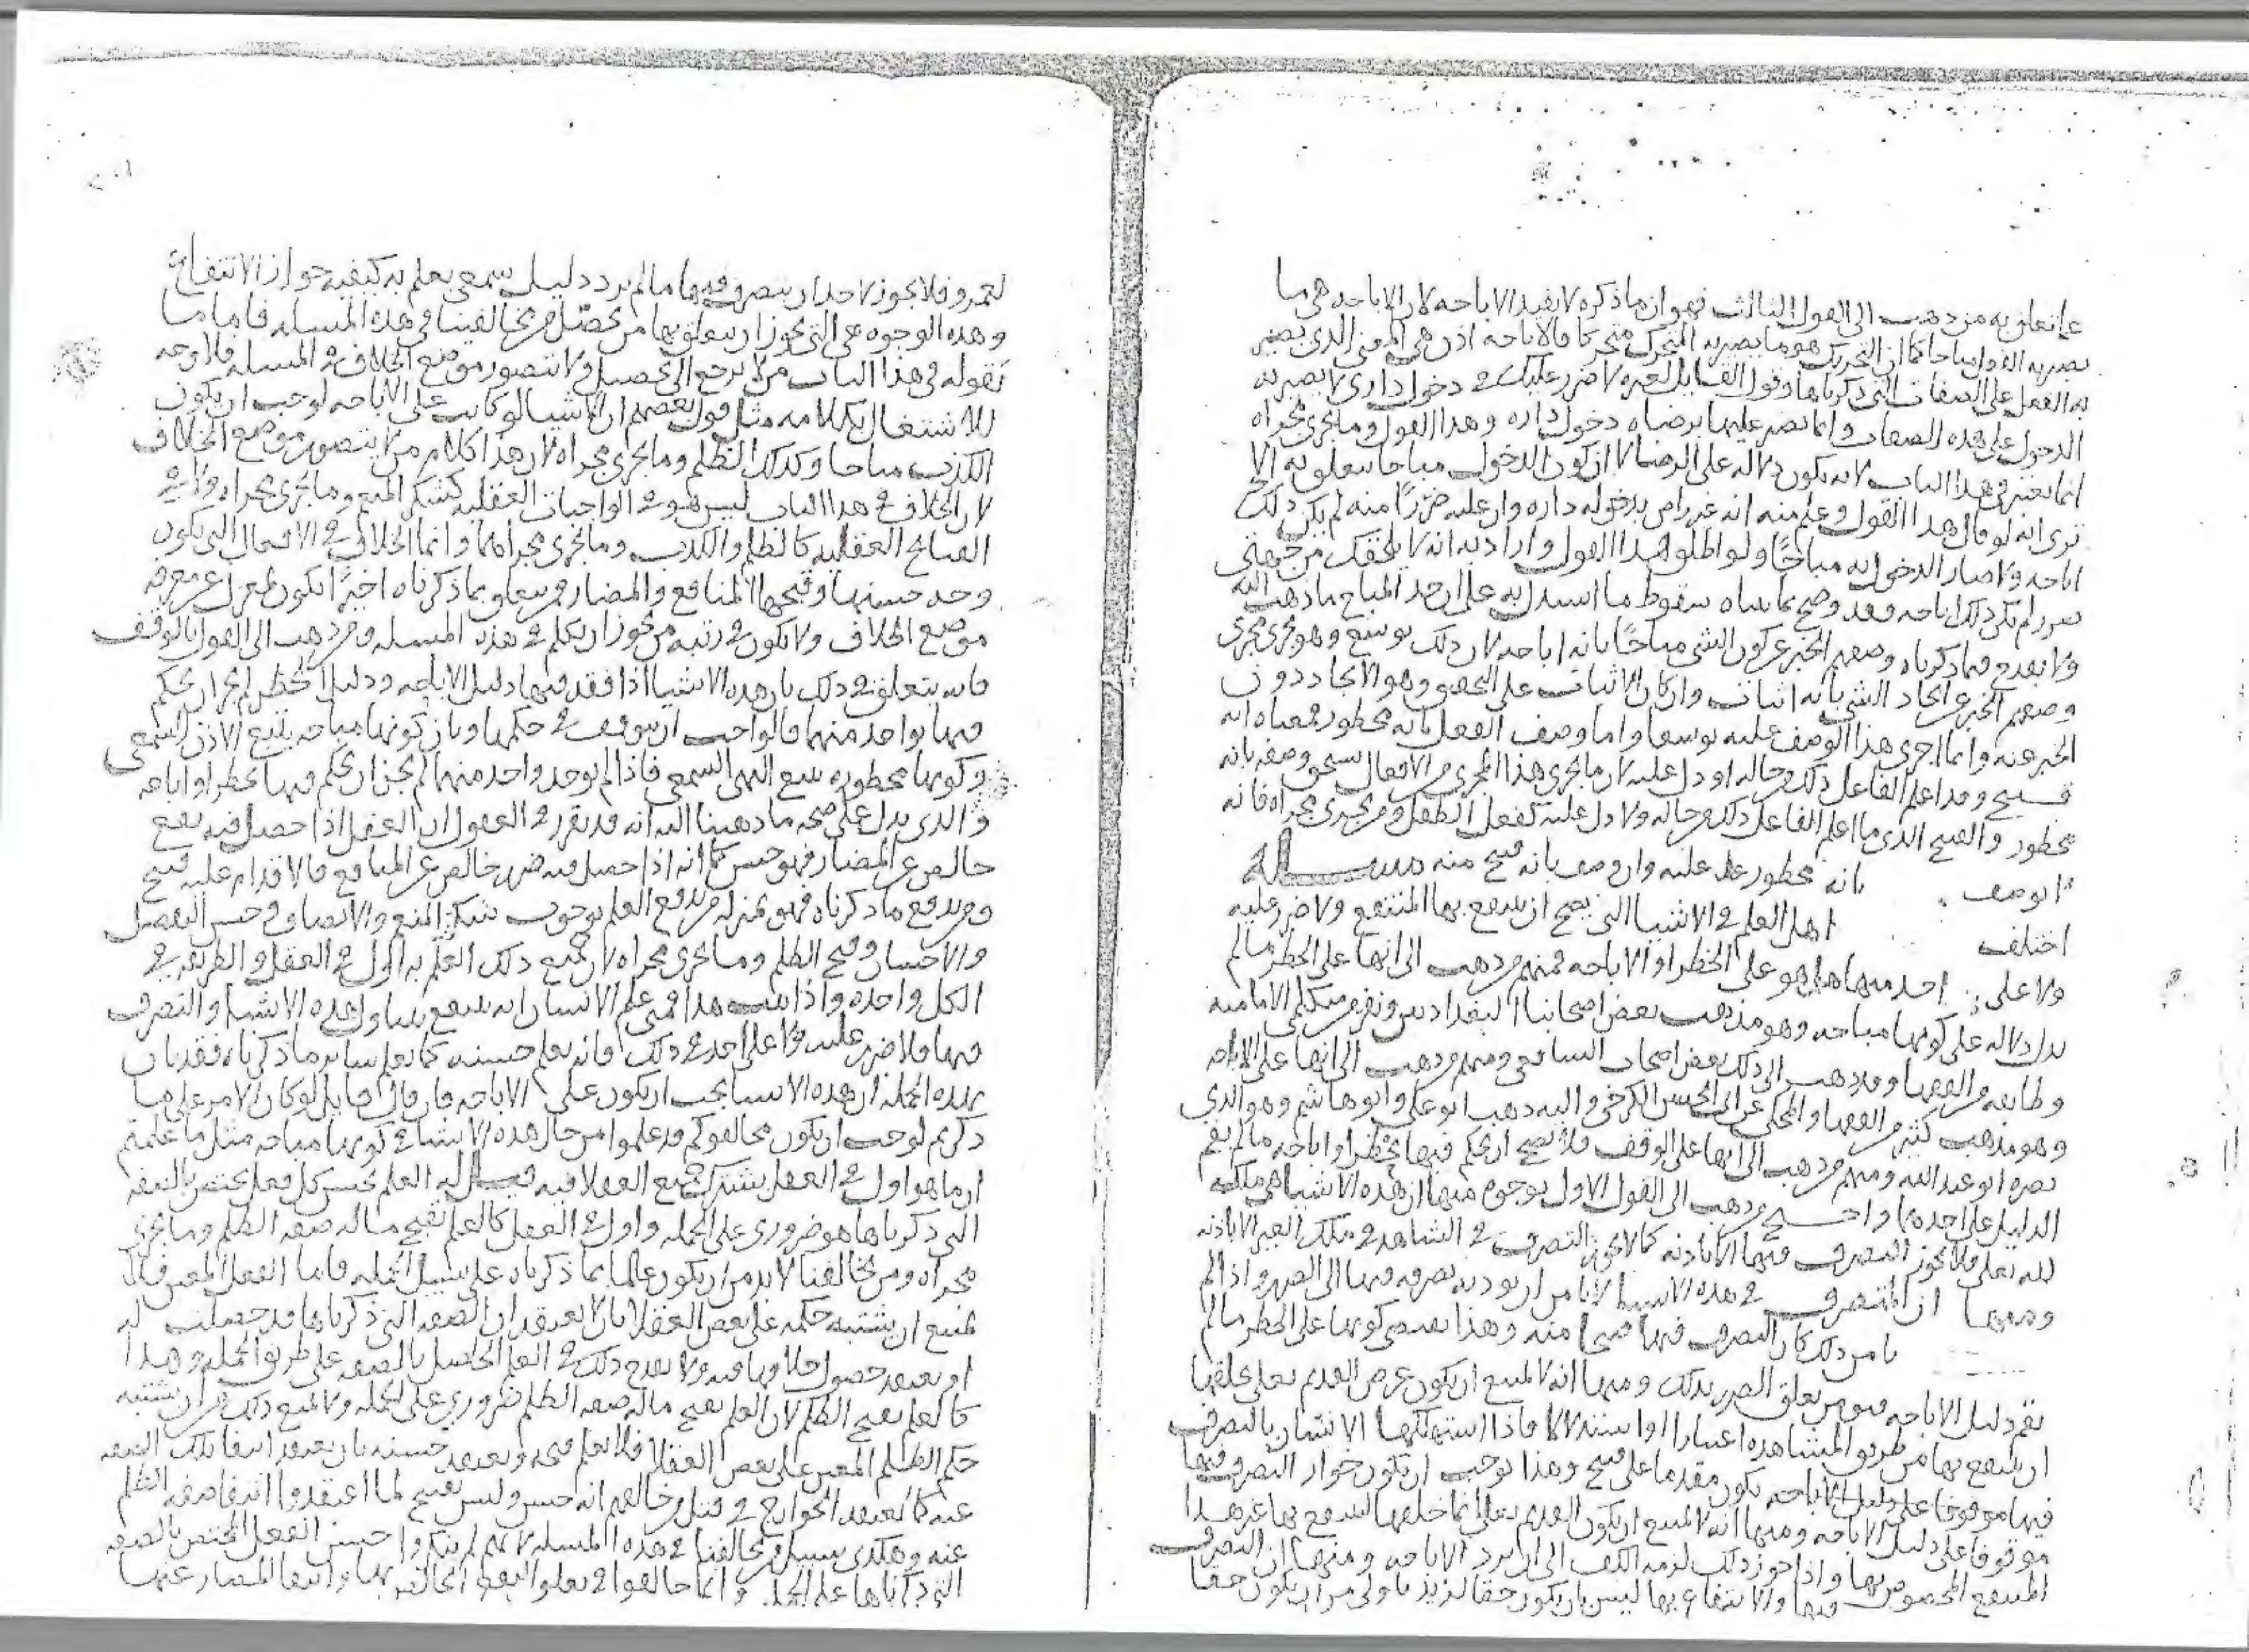 ما تعلق به من ذهب الى القول الثالث فهو ان ما ذكره لا يفيد الاباحه لان الاباحه هي ما
يصير به الفعل مباحا كما ان التحريك هو ما يصير به المتحرك متحركا فالاباحه اذن هي المعنى الذي يصير
به الفعل على الصفات التي ذكرناها وقول القايل لغيره لا ضرر عليك في دخول داري لا يصير به
الدخول على هذه الصفات وانما يصير عليها برضاه دخول داره وهذا القول وما يجري مجراه
انما يعتبر في هذا الباب لانه يكون دلاله على الرضا لا ان كون الدخول مباحا يتعلق به الا
ترى انه لو قال هذا القول وعلم منه انه غير راض بدخوله داره وان عليه ضررا منه لم يكن ذلك
اباحه ولا صار الدخول به مباحا ولو اطلق هذا القول واراد به انه لا يلحقك من جهتي
ضرر لم يكن ذلك اباحه فقد وضح بما بيناه سقوط ما استدل به على ان حد المباح ما ذهب اليه
ولا يقدح فيما ذكرناه وصفهم الخبر عن كون الشي مباحا بانه اباحه لان ذلك توسع وهو يجري مجرى
وصفهم الخبر عن اتحاد الشي بانه اثبات وان كان الاثبات على التحقيق وهو الايجاد دون
الخبر عنه وانما اجري هذا الوصف عليه توسعا واما وصف الفعل بانه محظور فمعناه انه
قبيح وقد اعلم الفاعل ذلك من حاله او دل عليه لان ما يجري هذا المجرى من الافعال يستحق وصفه بانه
محظور والقبيح الذي ما اعلم الفاعل ذلك من حاله ولا دل عليه كفعل الطفل ومن يجري مجراه فانه
لا يوصف بانه محظور عليه وان وصف بانه قبيح منه مسـاله
اختلف اهل العلم في الاشيا التي يصح ان ينتفع بها المنتفع ولا ضرر عليه
ولا على احد فيها هل هو على الحظر او الاباحه فمنهم من ذهب الى انها على الحظر ما لم
يدل دلاله على كونها مباحه وهو مذهب بعض اصحابنا البغداديين ونفر من متكلمي الاماميه
وطايفه من الفقها وقد ذهب الى ذلك بعض اصحاب الشافعي ومنهم من ذهب الى انها على الاباحه
وهو مذهب كثير من الفقها والمحكي عن ابي الحسن الكرخي واليه ذهب ابو علي وابو هاشم وهو الذي
نصره ابو عبد الله ومنهم من ذهب الى انها على الوقف فلا يصح ان يحكم فيها بحظر او اباحه ما لم يقم
الدليل على احدهما واحتج من ذهب الى القول الاول بوجوه منها ان هذه الاشيا هي ملك
لله تعلى فلا يجوز التصرف فيها الا باذنه كما لا يجوز التصرف في الشاهد في ملك الغير الا باذنه
ومنها ان المتصرف في هذه الاشيا لا يامن ان يوديه تصرفه فيها الى الضرر واذا لم
يامن ذلك كان التصرف فيها قبيحا منه وهذا يقتضي كونها على الحظر ما لم
يقم دليل الاباحه فيومن تعلق الضرر بذلك ومنها انه لا يمتنع ان يكون غرض القديم تعلى بخلقها
ان ينتفع بها من طريق المشاهده اعتبارا او استدلالا فاذا استهلكها الانسان بالتصرف
فيها موقوفا على دليل الاباحه يكون مقدما على قبيح وهذا يوجب ان يكون جواز التصرف فيها
موقوفا على دليل الاباحه ومنها انه لا يمتنع ان يكون القديم تعلى انما خلقها لينتفع بها غير هذا
المنتفع المخصوص بها واذا جوز ذلك لزمه الكف الى ان يرد الاباحه ومنها ان التصرف
فيها والانتفاع بها ليس بان يكون حقا لزيد باولى من ان يكون حقا
لعمرو فلا يجوز لاحد ان يتصرف فيها ما لم يرد دليل سمعي يعلم به كيفيه جواز الانتفاع
وهذه الوجوه هي التي يجوز ان يتعلق بها من يحصل من مخالفينا في هذه المساله فاما ما
تقوله في هذا الباب من لا يرجع الى تحصيل ولا تتصور موضع الخلاف في المساله فلا وجه
للاشتغال بكلامه مثل قول بعضهم ان الاشيا لو كانت على الاباحه لوجب ان يكون
الكذب مباحا وكذلك الظلم وما يجري مجراه لان هذا كلام من لا يتصور موضع الخلاف
لان الخلاف في هذا الباب ليس هو في الواجبات العقليه كشكر المنعم وما يجري مجراه ولا في
القبايح العقليه كالظلم والكذب وما يجري مجراهما وانما الخلاف في الافعال التي يكون
وجه حسنها وقبحها المنافع والمضار ومن يتعلق بما ذكرناه اخيرا يكون بمعزل عن معرفه
موضع الخلاف ولا يكون في رتبه من يجوز ان يكلم في هذه المساله ومن ذهب الى القول بالوقف
فانه يتعلق في ذلك بان هذه الاشيا اذا فقد فيها دليل الاباحه ودليل الحظر لم يجز ان يحكم
فيها بواحد منهما فالواجب ان يتوقف في حكمها وبان كونها مباحه يتبع الاذن السمعي
وكونها محظوره يتبع النهي السمعي فاذا لم يوجد واحد منهما لم يجز ان يحكم فيها بحظر او اباحه
والذي يدل على صحه ما ذهبنا اليه انه قد تقرر في العقول ان الفعل اذا حصل فيه نفع
خالص عن المضار فهو حسن كما انه اذا حصل فيه ضرر خالص عن المنافع فالاقدام عليه قبيح
ومن يدفع ما ذكرناه فهو بمنزله من يدفع العلم بوجوب شكر المنعم والانصاف وحسن التفضل
والاحسان وقبح الظلم وما يجري مجراه لان جميع ذلك العلم به اول في العقل والطريقه في
الكل واحده واذا ثبت هذا فمتى علم الانسان انه ينتفع بتناول هذه الاشيا والتصرف
فيها فلا ضرر عليه ولا على احد في ذلك فانه يعلم حسنه كما يعلم ساير ما ذكرناه فقد بان
بهذه الجمله ان هذه الاشيا يجب ان يكون على الاباحه فان قال قايل لو كان الامر على ما
ذكرتم لوجب ان يكون مخالفوكم قد علموا من حال هذه الاشيا في كونها مباحه مثل ما علمتم
ان ما هو اول في العقل يشترك جميع العقلا فيه قيـل له العلم بحسن كل فعل يختص بالصفه
التي ذكرناها هو ضروري على الجمله واول في العقل كالعلم بقبح ما له صفه الظلم وما يجري
مجراه ومن يخالفنا لا بد من ان يكون عالما بما ذكرناه على سبيل الجمله فاما الفعل المعين فلا
يمتنع ان يشتبه حكمه على بعض العقلا بان لا يعتقد ان الصفه التي ذكرناها قد حصلت له
او يعتقد حصول خلافها فيه ولا يقدح ذلك في العلم الحاصل بالصفه على طريق الجمله وهذا
كالعلم بقبح الظلم لان العلم بقبح ما له صفه الظلم ضروري على الجمله ولا يمنع ذلك من ان يشتبه
حكم الظلم المعين على بعض العقلا فلا يعلم قبحه ويعتقد حسنه بان يعتقد انتفا تلك الصفه
عنه كما يعتقد الخوارج في قتل من خالفهم انه حسن وليس بقبيح لما اعتقدوا انتفا صفه الظلم
عنه وهكذى سبيل من يخالفنا في هذه المساله لانهم لم ينكروا حسن الفعل المختص بالصفه
التي ذكرناها على الجمله وانما خالفوا في تعلق النفع الخالص بها وانتفا المضار عنها